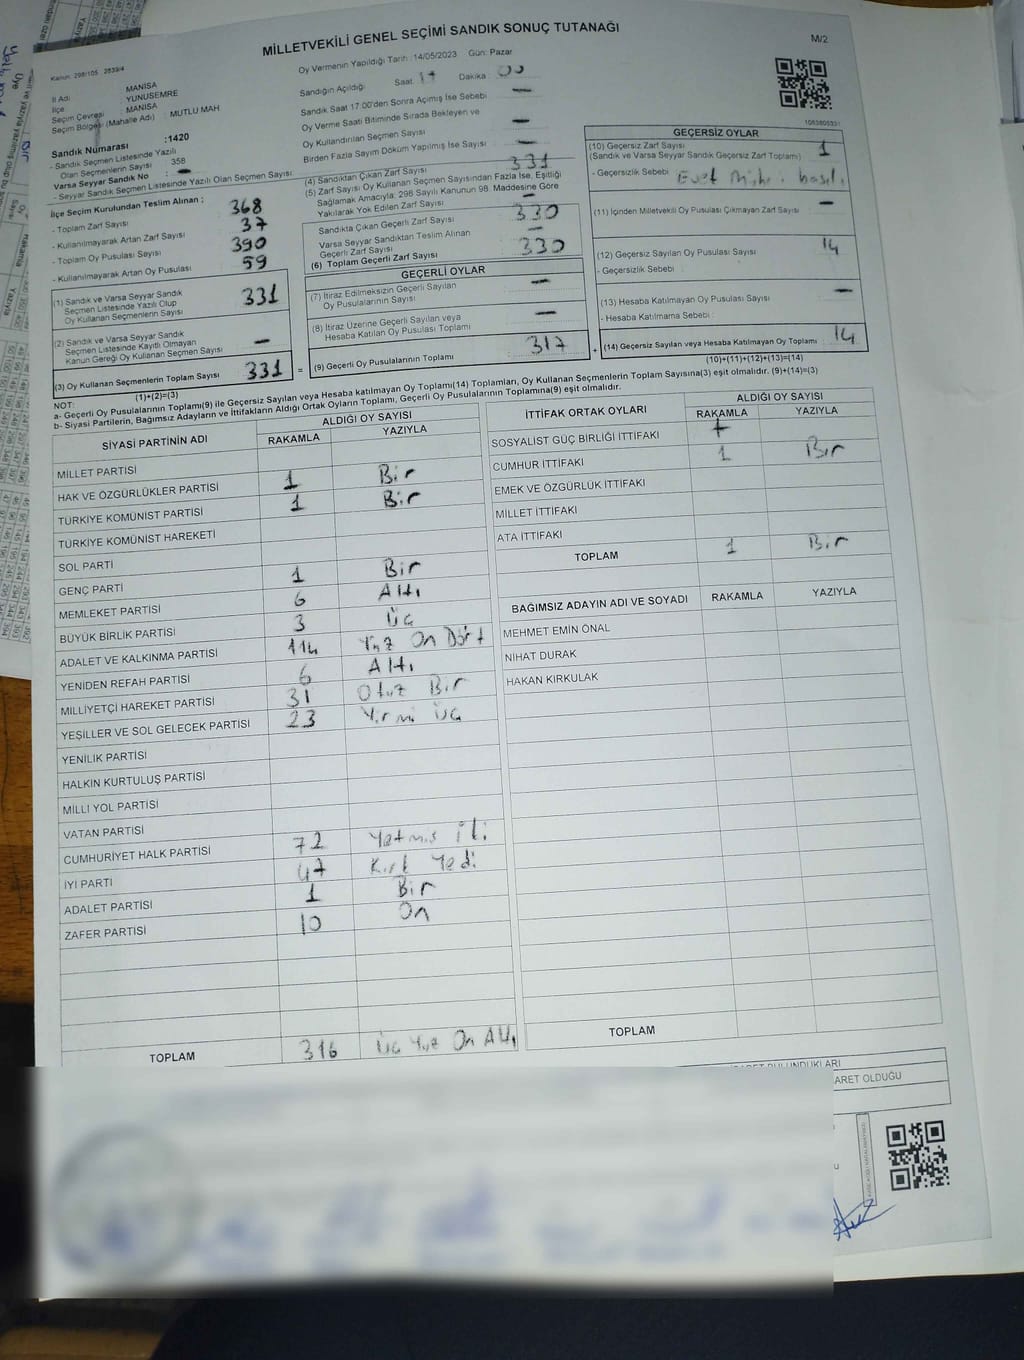 MİLLETVEKİLİ GENEL SEÇİMİ SANDIK SONUÇ TUTANAĞI
M/2
Kanun: 298/105 2839/4
Oy Vermenin Yapıldığı Tarih :14/05/2023 Gün: Pazar
İl Adı : MANİSA
İlçe : YUNUSEMRE
Seçim Çevresi : MANİSA
Seçim Bölgesi (Mahalle Adı) : MUTLU MAH
Sandık Numarası :1420
- Sandık Seçmen Listesinde Yazılı Olan Seçmenlerin Sayısı : 358
Varsa Seyyar Sandık No : -
- Seyyar Sandık Seçmen Listesinde Yazılı Olan Seçmen Sayısı:
Sandığın Açıldığı Saat 17 Dakika 00
Sandık Saat 17.00'den Sonra Açımış İse Sebebi -
Oy Verme Saati Bitiminde Sırada Bekleyen ve
Oy Kullandırılan Seçmen Sayısı -
Birden Fazla Sayım Döküm Yapılmış İse Sayısı -
İlçe Seçim Kurulundan Teslim Alınan ;
- Toplam Zarf Sayısı 368
- Kullanılmayarak Artan Zarf Sayısı 37
- Toplam Oy Pusulası Sayısı 390
- Kullanılmayarak Artan Oy Pusulası 59
(1) Sandık ve Varsa Seyyar Sandık
Seçmen Listesinde Yazılı Olup
Oy Kullanan Seçmenlerin Sayısı 331
(2) Sandık ve Varsa Seyyar Sandık
Seçmen Listesinde Kayıtlı Olmayan
Kanun Gereği Oy Kullanan Seçmen Sayısı -
(3) Oy Kullanan Seçmenlerin Toplam Sayısı 331 =
(1)+(2)=(3)
(4) Sandıktan Çıkan Zarf Sayısı 331
(5) Zarf Sayısı Oy Kullanan Seçmen Sayısından Fazla İse, Eşitliği
Sağlamak Amacıyla; 298 Sayılı Kanunun 98. Maddesine Göre
Yakılarak Yok Edilen Zarf Sayısı -
Sandıkta Çıkan Geçerli Zarf Sayısı 330
Varsa Seyyar Sandıktan Teslim Alınan
Geçerli Zarf Sayısı -
(6) Toplam Geçerli Zarf Sayısı 330
GEÇERLİ OYLAR
(7) İtiraz Edilmeksizin Geçerli Sayılan
Oy Pusulalarının Sayısı -
(8) İtiraz Üzerine Geçerli Sayılan veya
Hesaba Katılan Oy Pusulası Toplamı -
(9) Geçerli Oy Pusulalarının Toplamı : 317 +
1053805331
GEÇERSİZ OYLAR
(10) Geçersiz Zarf Sayısı 1
(Sandık ve Varsa Seyyar Sandık Geçersiz Zarf Toplamı)
- Geçersizlik Sebebi : Evet
(11) İçinden Milletvekili Oy Pusulası Çıkmayan Zarf Sayısı -
(12) Geçersiz Sayılan Oy Pusulası Sayısı 14
- Geçersizlik Sebebi
(13) Hesaba Katılmayan Oy Pusulası Sayısı -
- Hesaba Katılmama Sebebi
(14) Geçersiz Sayılan veya Hesaba Katılmayan Oy Toplamı 14
(10)+(11)+(12)+(13)=(14)
NOT:
a- Geçerli Oy Pusulalarının Toplamı(9) ile Geçersiz Sayılan veya Hesaba katılmayan Oy Toplamı(14) Toplamları, Oy Kullanan Seçmenlerin Toplam Sayısına(3) eşit olmalıdır. (9)+(14)=(3)
b- Siyasi Partilerin, Bağımsız Adayların ve İttifakların Aldığı Ortak Oyların Toplamı, Geçerli Oy Pusulalarının Toplamına(9) eşit olmalıdır.
SİYASİ PARTİNİN ADI ALDIĞI OY SAYISI
RAKAMLA YAZIYLA
MİLLET PARTİSİ
HAK VE ÖZGÜRLÜKLER PARTİSİ 1 Bir
TÜRKİYE KOMÜNİST PARTİSİ 1 Bir
TÜRKİYE KOMÜNİST HAREKETİ
SOL PARTİ
GENÇ PARTİ 1 Bir
MEMLEKET PARTİSİ 6 Altı
BÜYÜK BİRLİK PARTİSİ 3 Üç
ADALET VE KALKINMA PARTİSİ 114 Yüz On Dört
YENİDEN REFAH PARTİSİ 6 Altı
MİLLİYETÇİ HAREKET PARTİSİ 31 Otuz Bir
YEŞİLLER VE SOL GELECEK PARTİSİ 23 Yirmi üç
YENİLİK PARTİSİ
HALKIN KURTULUŞ PARTİSİ
MİLLİ YOL PARTİSİ
VATAN PARTİSİ
CUMHURİYET HALK PARTİSİ 72 Yetmiş iki
İYİ PARTİ 47 Kırk Yedi
ADALET PARTİSİ 1 Bir
ZAFER PARTİSİ 10 On
TOPLAM 316 Üç Yüz On Altı
İTTİFAK ORTAK OYLARI ALDIĞI OY SAYISI
RAKAMLA YAZIYLA
SOSYALİST GÜÇ BİRLİĞİ İTTİFAKI
CUMHUR İTTİFAKI 1 Bir
EMEK VE ÖZGÜRLÜK İTTİFAKI
MİLLET İTTİFAKI
ATA İTTİFAKI
TOPLAM 1 Bir
BAĞIMSIZ ADAYIN ADI VE SOYADI RAKAMLA YAZIYLA
MEHMET EMİN ÖNAL
NİHAT DURAK
HAKAN KIRKULAK
TOPLAM
ARET OLDUĞU